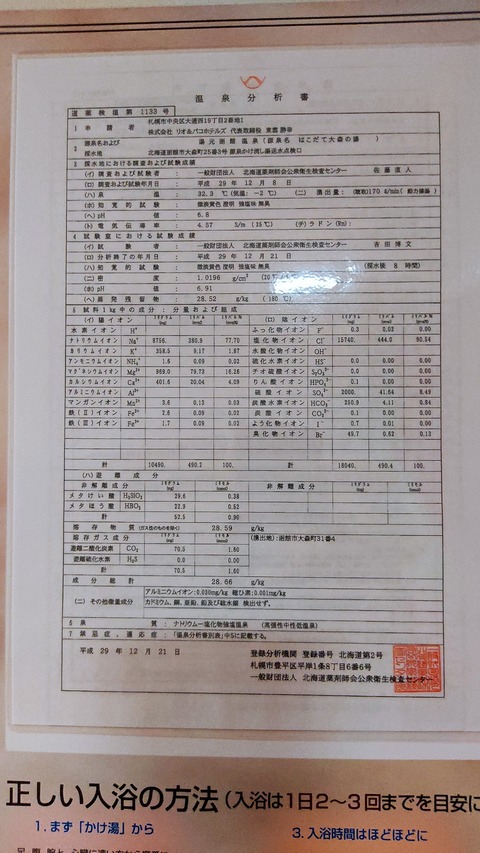 温泉分析書
道薬検温第 1133 号
1 申請者 札幌市中央区大通西15丁目2番地1
株式会社 リオ&パコホテルズ 代表取締役
2 源泉名および 湯元函館温泉(源泉名 はこだて大森の湯)
採水地 北海道函館市大森町25番3号 源泉かけ流し届送水点検口
3 採水地における調査および試験成績
(イ) 調査および試験者 : 一般財団法人 北海道薬剤師会公衆衛生検査センター 佐藤直人
(ロ) 調査および試験年月日 : 平成 29 年 12 月 8 日
(ハ) 泉温 : 32.3 ℃ (気温: -2 ℃) (ニ) 湧出量: 170 ℓ/min( 動力揚湯 )
(ホ) 知覚的試験 : 微淡黄色 澄明 強塩味 無臭
(ヘ) pH値 : 6.8
(ト) 電気伝導率 : 4.37 S/m (25℃) (チ)ラドン(Rn)
4 試験室における試験成績
(イ) 試験者 : 一般財団法人 北海道薬剤師会公衆衛生検査センター 吉田博文
(ロ) 分析終了の年月日 : 平成 29 年 12 月 21 日
(ハ) 知覚的試験 : 微淡黄色 澄明 強塩味 無臭 (採水後 8 時間)
(ニ) 密度 : 1.0196 g/cm³ (20℃
(ホ) pH値 : 6.91
(ヘ) 蒸発残留物 : 28.52 g/kg (180 ℃)
5 試料1kg中の成分:分量および組成
(イ) 陽イオン ミリグラム (mg) ミリバル (mval) ミリバル% (mval%) (ロ) 陰イオン ミリグラム (mg) ミリバル (mval) ミリバル% (mval%)
水素イオン H⁺ ふっ化物イオン F⁻ 0.3 0.02 0.00
ナトリウムイオン Na⁺ 8756. 380.9 77.70 塩化物イオン Cl⁻ 15740. 444.0 90.54
カリウムイオン K⁺ 358.5 9.17 1.87 水酸化物イオン OH⁻
アンモニウムイオン NH₄⁺ 1.6 0.09 0.02 硫化水素イオン HS⁻ 0.0 0.00 0.00
マグネシウムイオン Mg²⁺ 969.0 79.73 16.26 チオ硫酸イオン S₂O₃²⁻ 0.0 0.00 0.00
カルシウムイオン Ca²⁺ 401.6 20.04 4.09 りん酸イオン HPO₄²⁻ 0.1 0.00 0.00
アルミニウムイオン Al³⁺ 硫酸イオン SO₄²⁻ 2000. 41.64 8.49
マンガンイオン Mn²⁺ 3.6 0.13 0.03 炭酸水素イオン HCO₃⁻ 250.9 4.11 0.84
鉄(Ⅱ)イオン Fe²⁺ 2.6 0.09 0.02 炭酸イオン CO₃²⁻ 0.1 0.00 0.00
鉄(Ⅲ)イオン Fe³⁺ 1.7 0.09 0.02 よう化物イオン I⁻ 0.7 0.01 0.00
臭化物イオン Br⁻ 49.7 0.62 0.13
計 10490. 490.2 100. 計 18040. 490.4 100.
(ハ) 遊離成分
非解離成分 ミリグラム (mg) ミリモル (mmol) 非解離成分 ミリグラム (mg) ミリモル (mmol)
メタけい酸 H₂SiO₃ 29.6 0.38
メタほう酸 HBO₂ 22.9 0.52
計 52.5 0.90
溶存物質(ガス性のものを除く) 28.59 g/kg
溶存ガス成分 ミリグラム (mg) ミリモル (mmol) (湧出地):函館市大森町31番4
遊離二酸化炭素 CO₂ 70.5 1.60
遊離硫化水素 H₂S 0.0 0.00
計 70.5 1.60
成分総計 28.66 g/kg
(ニ) その他微量成分 アルミニウムイオン:0.030mg/kg 総ひ素:0.001mg/kg
カドミウム, 銅, 亜鉛, 鉛及び総水銀 検出せず。
6 泉質 : ナトリウム-塩化物強塩温泉 (高張性中性低温泉)
7 禁忌症、適応症: 「温泉分析書別表」中5に記載する。
平成 29 年 12 月 21 日
登録分析機関 登録番号 北海道第2号
札幌市豊平区平岸1条8丁目6番6号
一般財団法人 北海道薬剤師会公衆衛生検査センター
正しい入浴の方法(入浴は1日2〜3回までを目安に
1. まず「かけ湯」から
3. 入浴時間はほどほどに